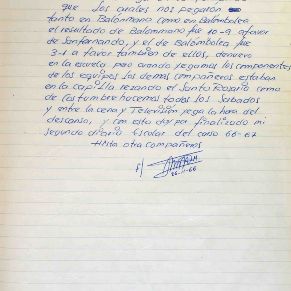 que los cuales nos pegaron
tanto en Balonmano como en Balombolea
el resultado de Balonmano fue 10-9 a favor
de Sanfernando, y el de Balombolea fue
3-1 a favor también de ellos, de nuevo
en la escuela pero cuando llegamos los componentes
de los equipos los demas compañeros estaban
en la capilla rezando el Santo Rosario como
de costumbre hacemos todos los Sabados
y entre la cena y Television llega la hora del
descanso, y con esto doy por finalizado mi
Segundo diario Escolar del curso 66-67
Hasta otra compañeros
F/
26-11-66